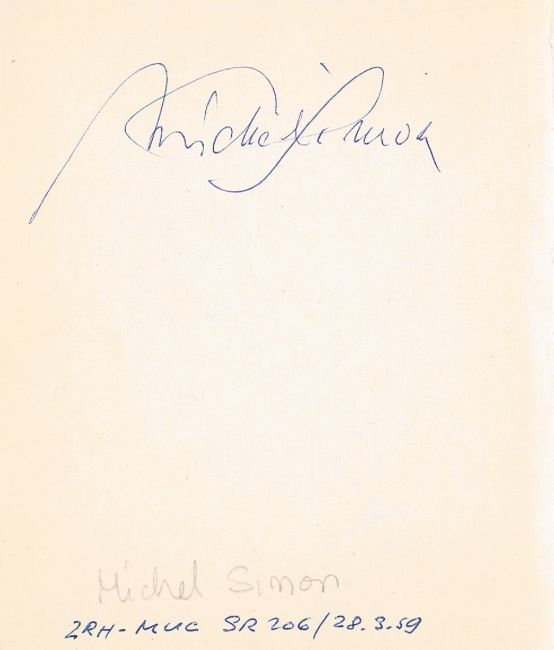 Michel Simon
Michel Simon
ZRH-MUC SR 206/28.3.59